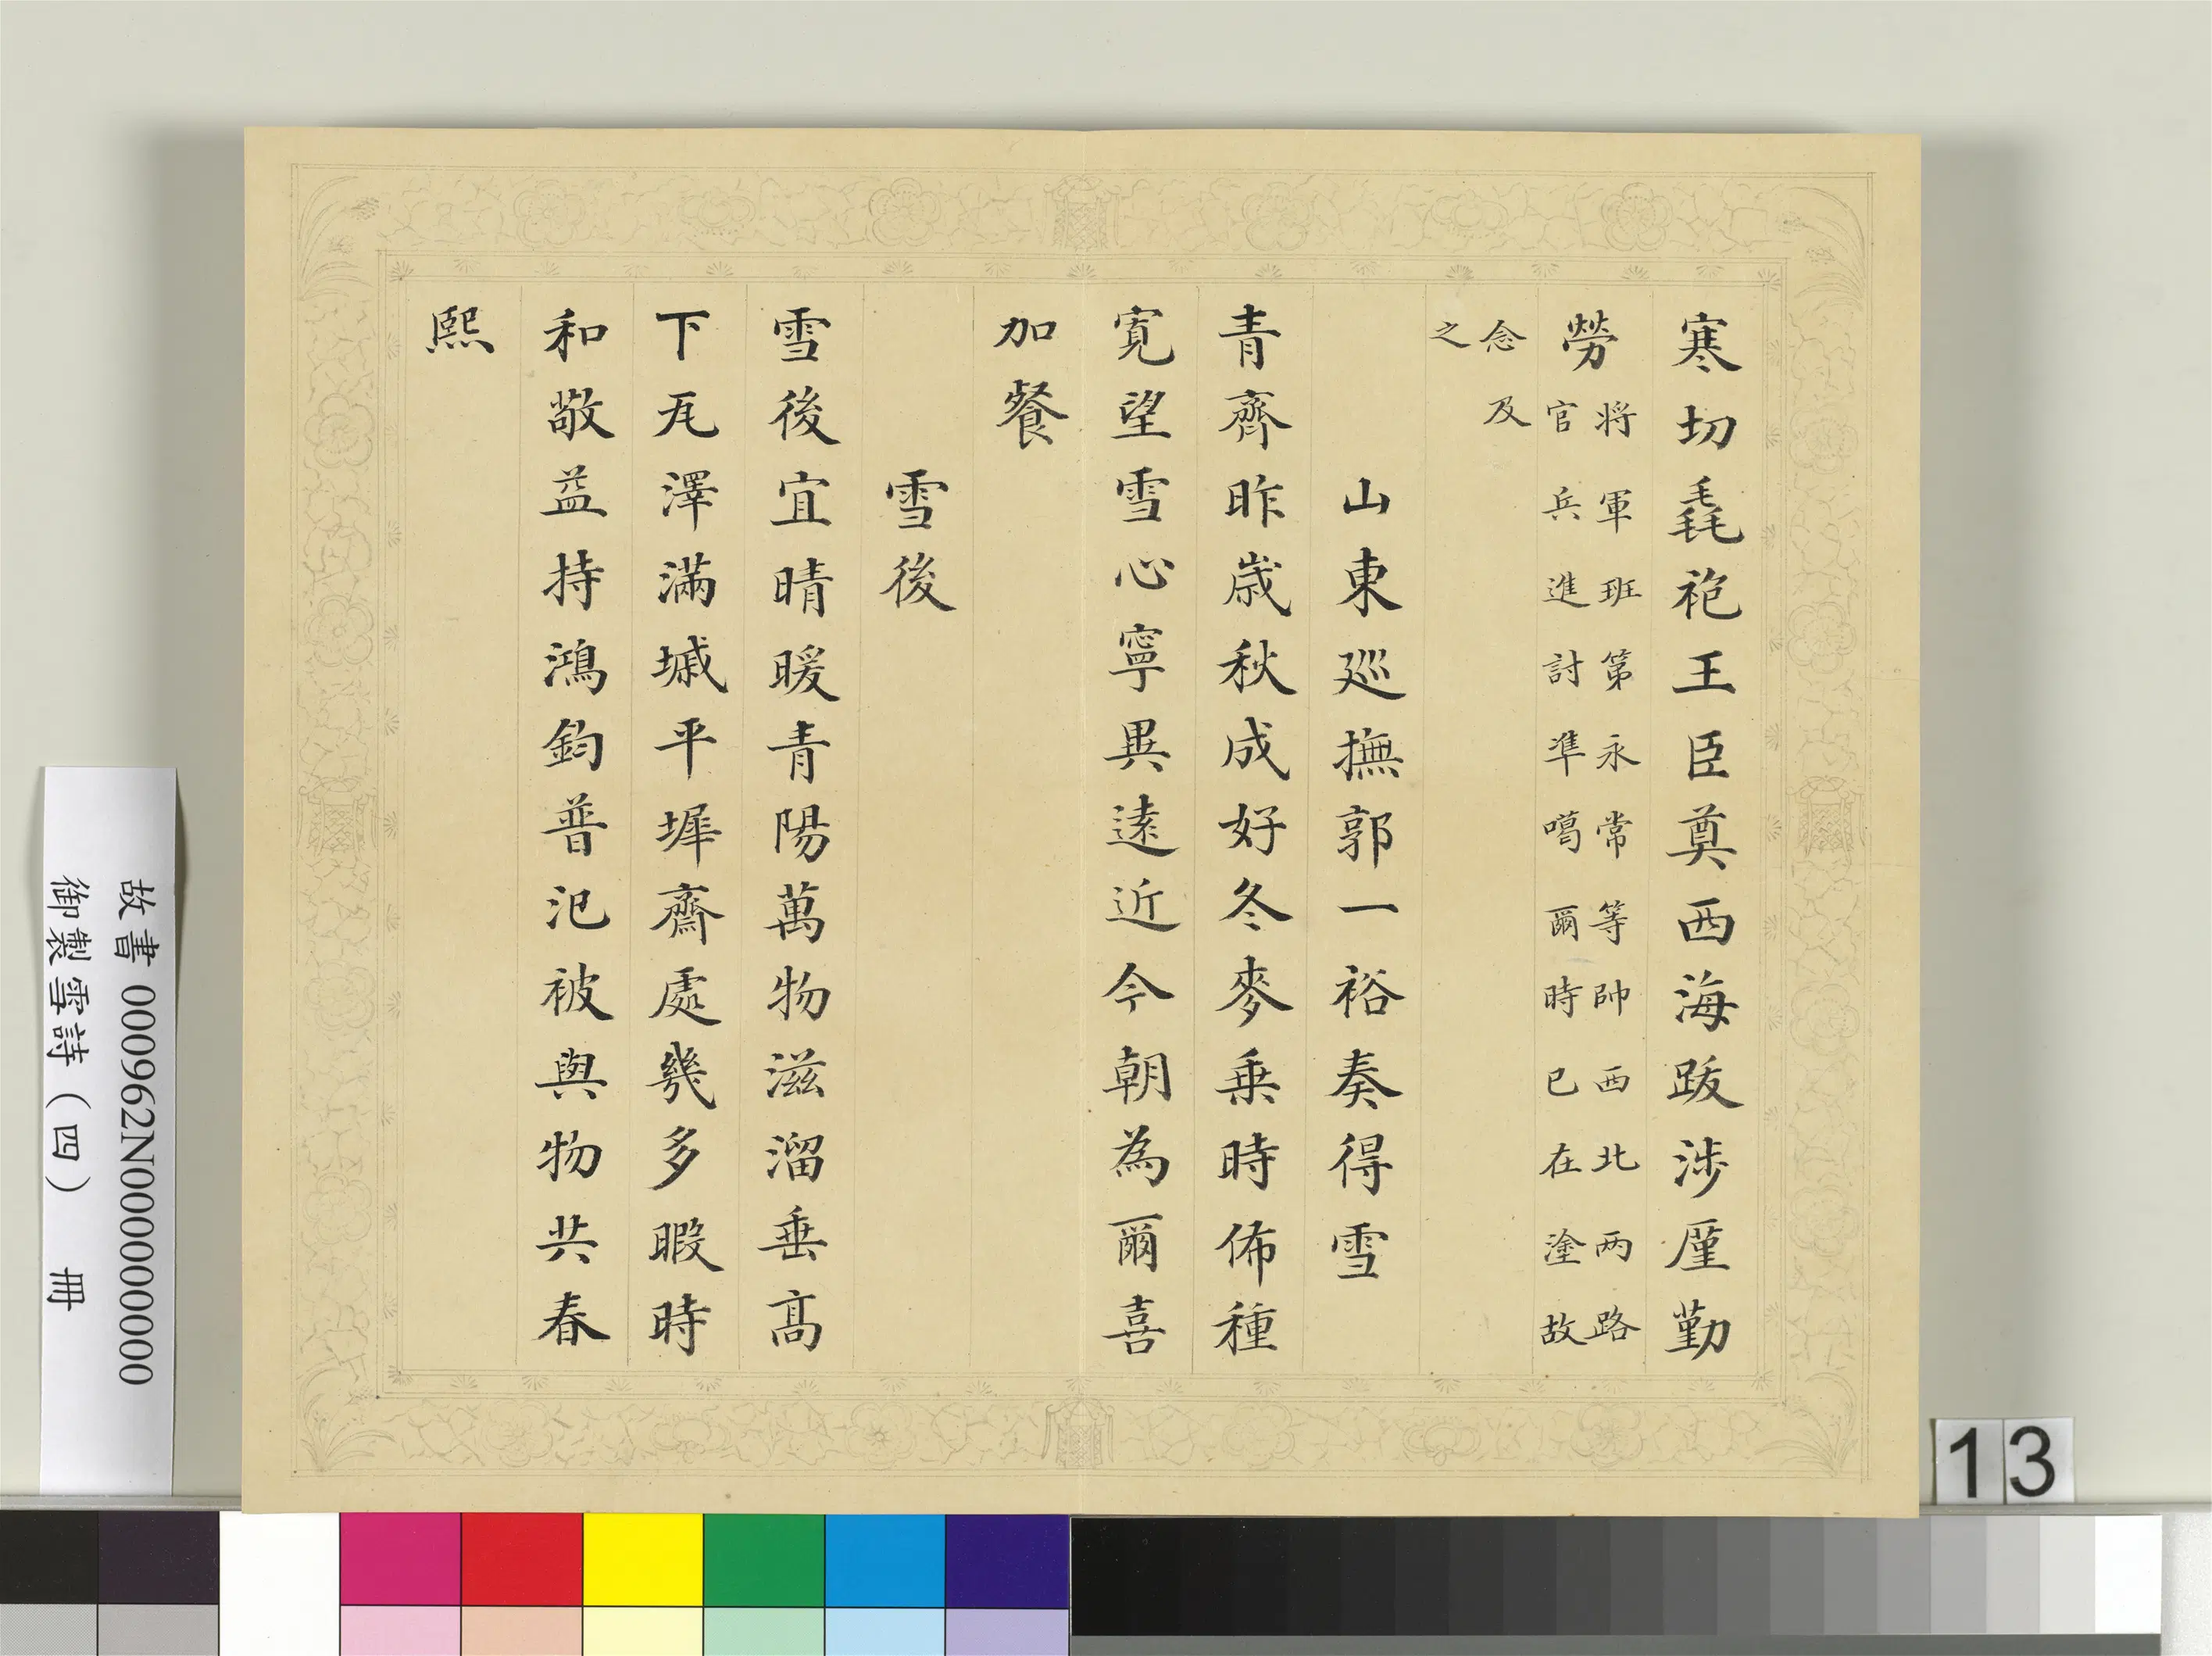 寒切毳袍王臣奠西海跋涉廑勤
勞將軍班第永常等帥西北两路
官兵進討準噶爾時已在塗故
念及
之
山東巡撫郭一裕奏得雪
青齊昨歲秋成好冬麥乗時佈種
寛望雪心寧異遠近今朝為爾喜
加餐
雪後
雪後宜晴暖青陽萬物滋溜垂髙
下瓦澤滿墄平墀齋處幾多暇時
和敬益持鴻鈞普氾被與物共春
熙
故書 000962N000000000
御製雪詩（四） 冊
13